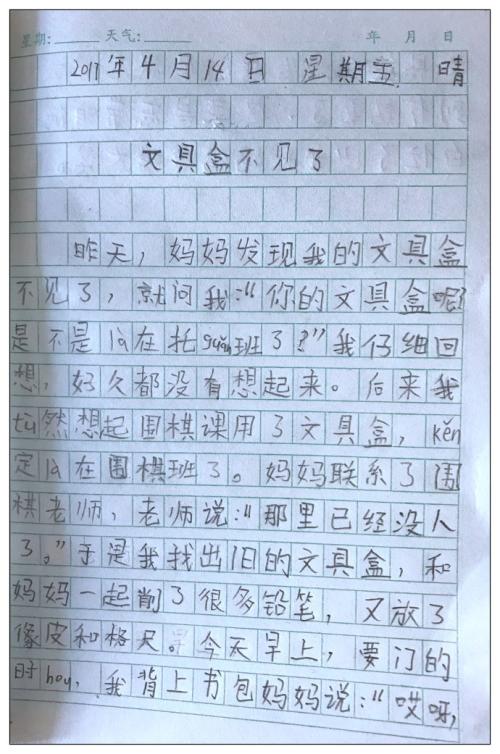 星期： 天气： 年 月 日
2017年4月14日 星期五 晴
文具盒不见了
昨天，妈妈发现我的文具盒
不见了，就问我：“你的文具盒呢？
是不是là在托guǎn班了？”我仔细回
想，好久都没有想起来。后来我
tū然想起围棋课用了文具盒，kěn
定là在围棋班了。妈妈联系了围
棋老师，老师说：“那里已经没人
了。”于是我找出旧的文具盒，和
妈妈一起削了很多铅笔，又放了
像皮和格尺。今天早上，要门的
时hou，我背上书包妈妈说：“哎呀，